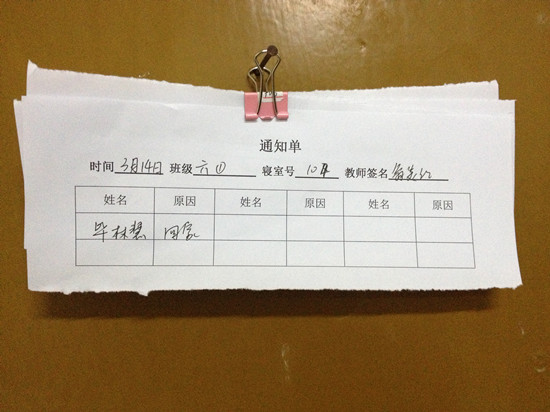 通知单
时间 3月14日 班级 六① 寝室号 104 教师签名
姓名 原因 姓名 原因 姓名 原因
毕林慧 回家